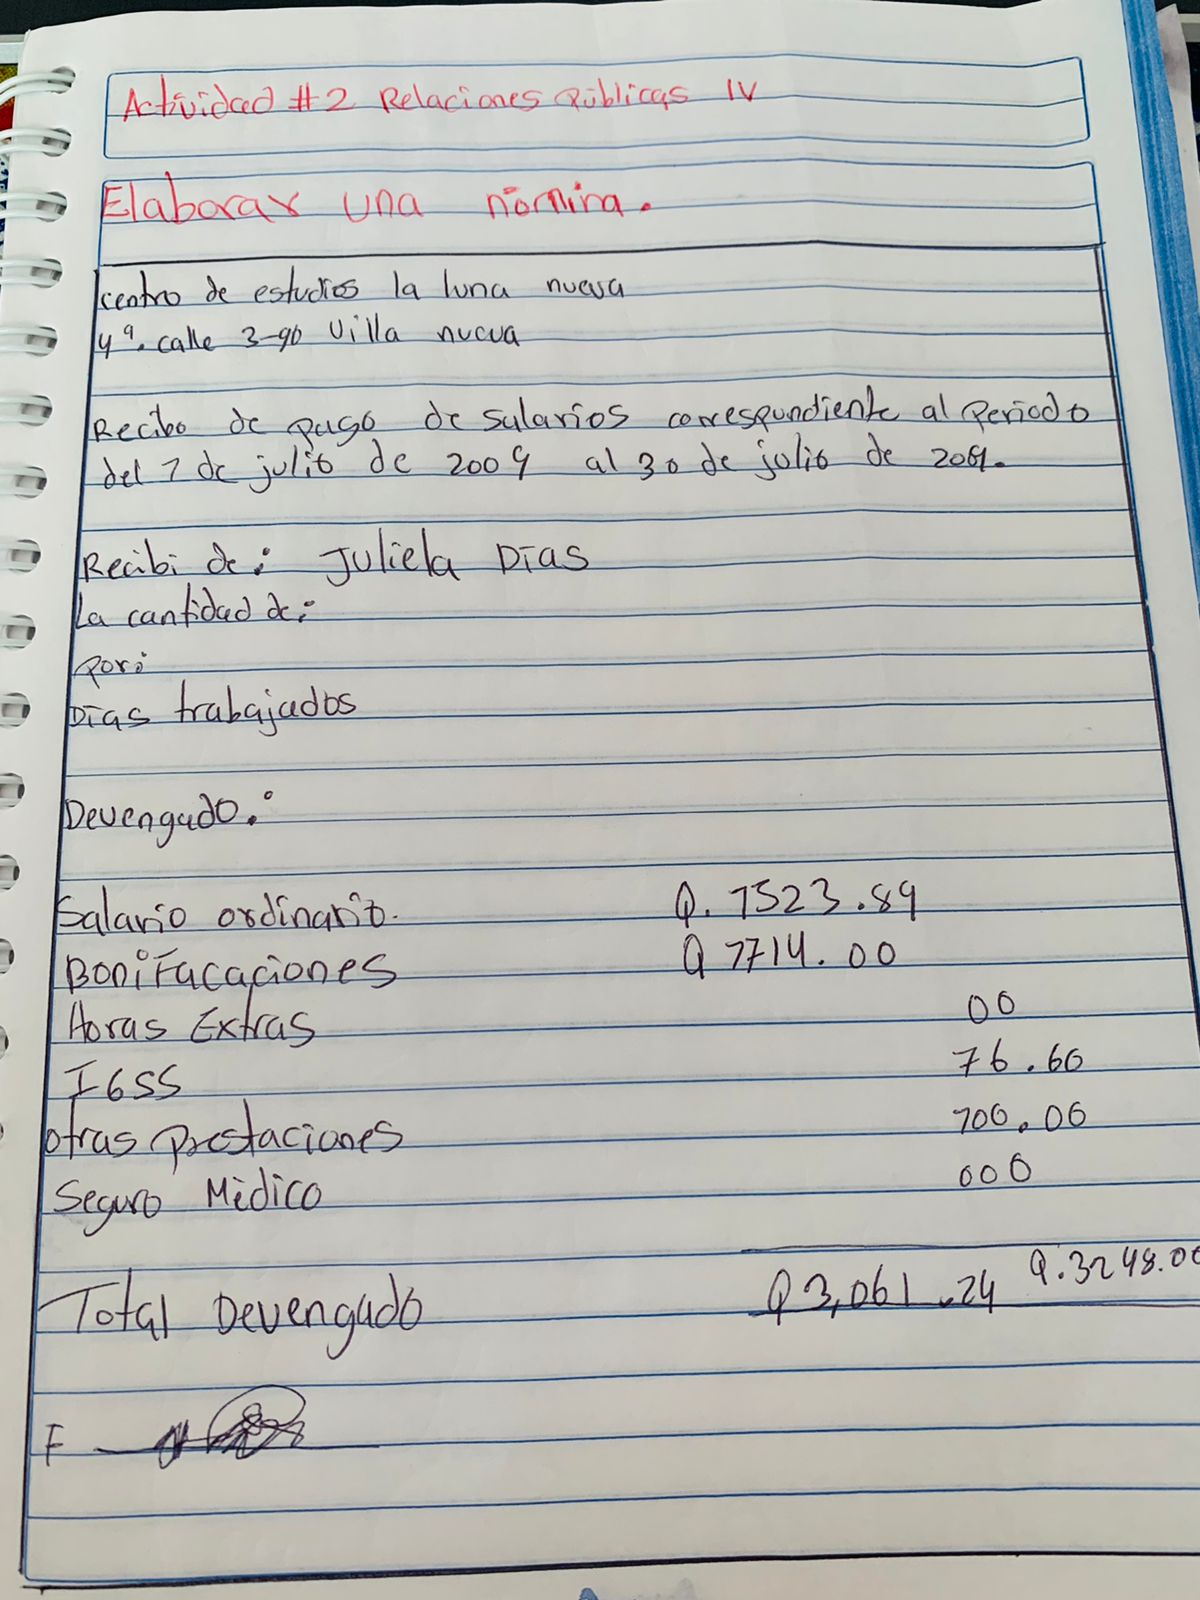 Actividad #2 Relaciones Públicas IV
Elaborar una nómina.
centro de estudios la luna nueva
4ª. calle 3-90 Villa nueva
Recibo de pago de salarios correspondiente al Periodo
del 1 de julio de 2009 al 30 de julio de 2009.
Recibi de: Juliela Dias
La cantidad de:
por:
Dias trabajados
Devengado:
Salario ordinario. Q. 1523.89
Bonifacaciones Q 1714.00
Horas Extras 00
IGSS 76.60
otras prestaciones 100.00
Seguro Mèdico 000
Total Devengado Q 3,061.24 Q.3248.00
F